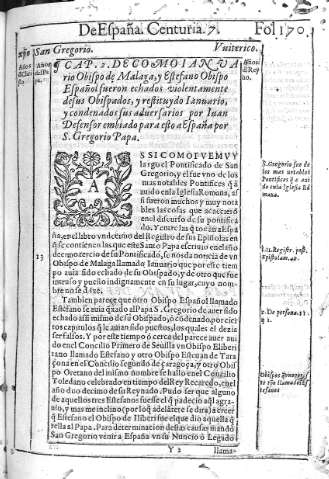 De España. Centuria. 7. Fol 170.
San Gregorio. Vuiterico.
CAP. 2. DE COMO IANVA
rio Obispo de Malaga, y Estefano Obispo
Español fueron echados violentamente
de sus Obispados, y restituydo Ianuario,
y condenados sus aduersarios por Iuan
Defensor embiado para esto a España por
S. Gregorio Papa.
ASSI COMO FVE MVY
largo el Pontificado de San
Gregorio, y el fue vno de los
mas notables Pontifices q̃ à
auido en la Iglesia Romana, as
si fueron muchos y muy nota
bles las cosas que acaecierõ
en el discurso de su pontifica
do. Y entre las q̃ tocan a Espa
ña, en el libro vndecimo del Registro de sus Epistolas en
q̃ se contienen las que este Santo Papa escriuio en el año
decimotercio de su Pontificado, se nos da noticia de vn
Obispo de Malaga llamado Ianuario que por este tiem
po auia sido echado de su Obispado, y de otro que fue
intruso y puesto indignamente en su lugar, cuyo nom
bre no se dize.
13
Tambien parece que otro Obispo Español llamado
Estefano se auia quexado al Papa S. Gregorio de auer sido
echado assi mismo de su Obispado, o cõdenado, por cier
tos capitulos q̃ le auian sido puestos, los quales el dezia
ser falsos. Y por este tiempo o cerca del parece auer aui
do en el Concilio Primero de Seuilla vn Obispo Eliberi
tano llamado Estefano y otro Obispo Esteuan de Tara
çona en el Concilio segundo de çaragoça, y otro Obis
po Oretano del mismo nombre se hallo en el Concilio
Toledano celebrado en tiempo del Rey Recaredo, en el
año duodecimo de su Reynado. Pudo ser que alguno
de aquellos tres Estefanos fuesse el q̃ padecio aq̃l agra-
uio, y mas me inclino (por loq̃ adelãte se dira) a creer
q̃ Estefano el Obispo de Iliberi fue el que dio aquella q̃
rella al Papa. Para determinacion destas causas mandò
San Gregorio venir a España vn su Nuncio ò Legado
Y 2 llama-
S. Gregorio fue de
los mas notables
Pontifices q̃ à aui
do en la Iglesia Ro
mana.